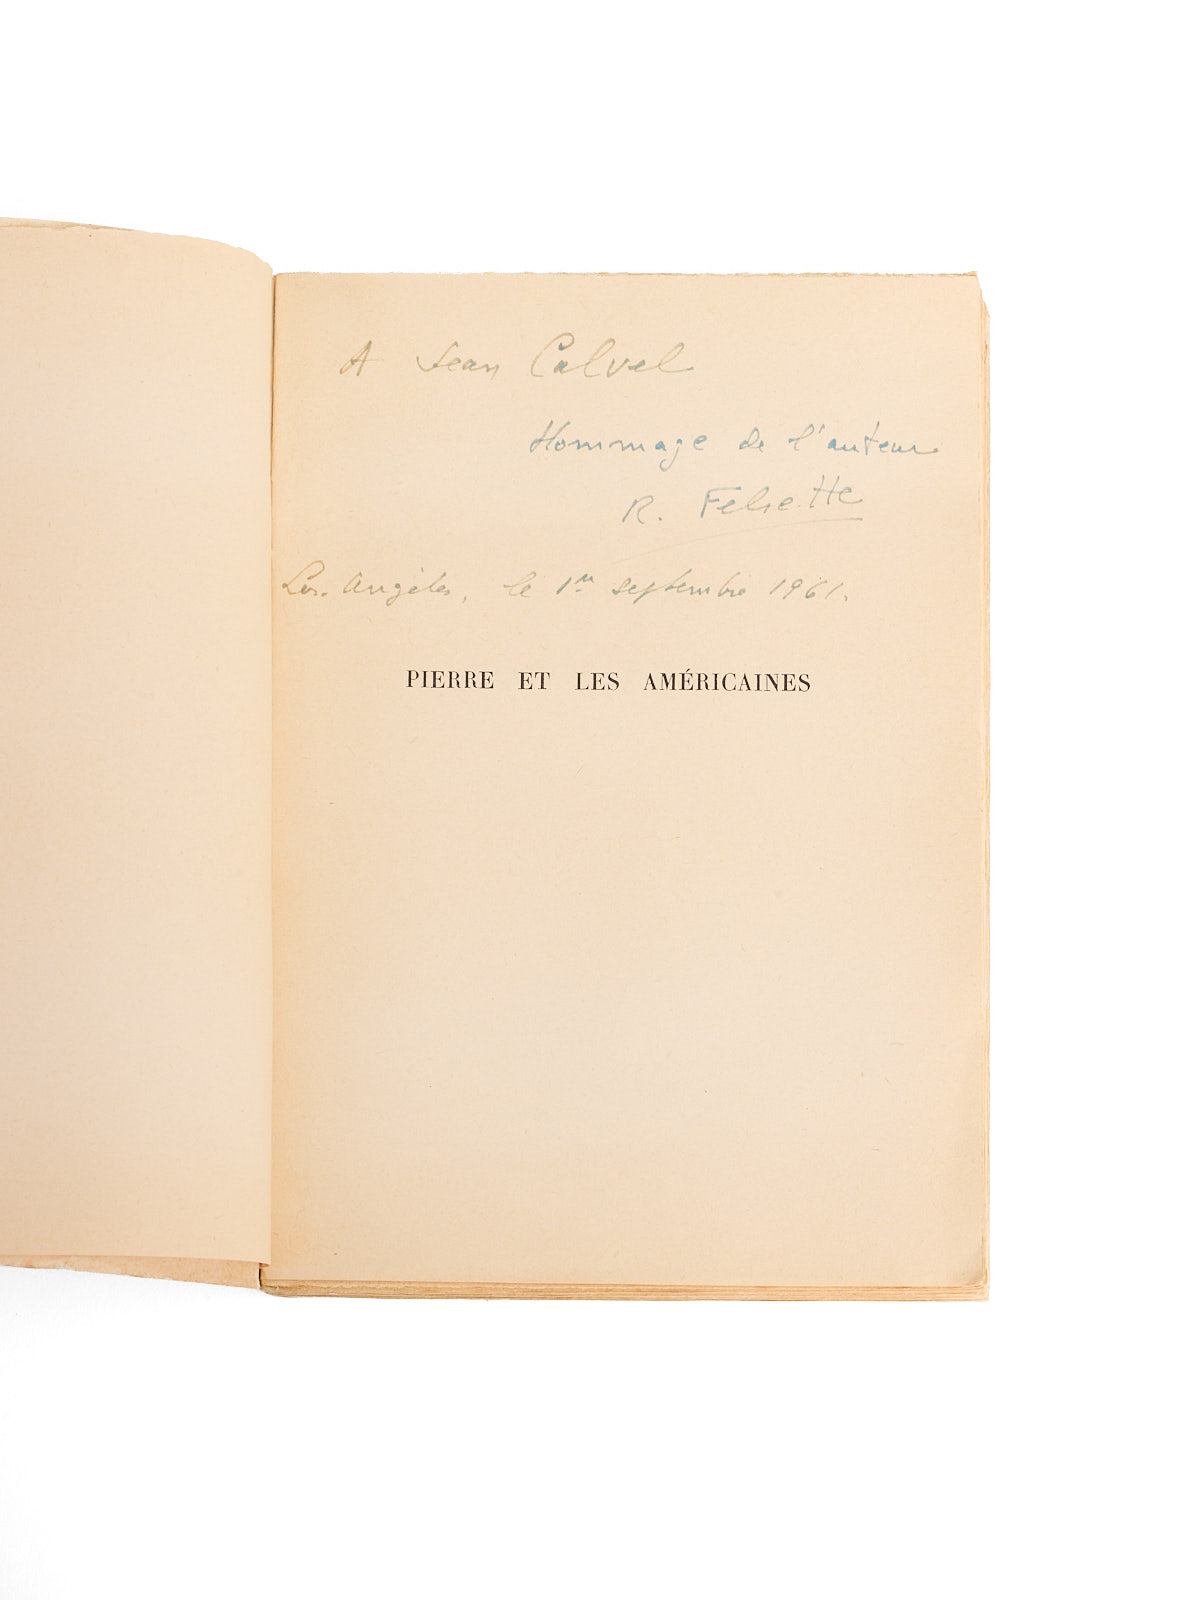 A Jean Calvel
Hommage de l'auteur
R.
Los Angeles, le 1er septembre 1961.
PIERRE ET LES AMÉRICAINES